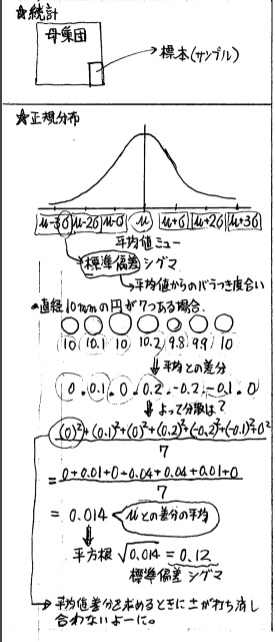 ☆統計
母集団
→標本(サンプル)
☆正規分布
μ-3σ μ-2σ μ-σ μ μ+σ μ+2σ μ+3σ
平均値ミュー
標準偏差シグマ
→平均値からのバラつき度合い
直径10mmの円が7つある場合.
10 10.1 10 10.2 9.8 9.9 10
⇓平均との差分
0 . 0.1 . 0 . 0.2 . -0.2 . -0.1 . 0
⇓よって分散は?
(0)²+(0.1)²+(0)²+(0.2)²+(-0.2)²+(-0.1)²+0²
7
= 0+0.01+0+0.04+0.04+0.01+0
7
= 0.014 μとの差分の平均
平方根 √0.014 = 0.12
標準偏差 シグマ
→平均値差分を求めるときに±が打ち消し
合わないよーに。